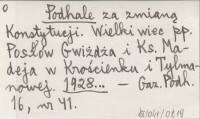 o
Podhale za zmianą
Konstytucji. Wielki wiec pp.
Posłów Gwiżdża i Ks. Ma-
deja w Krościenku i Tylma-
nowej. 1928... — Gaz. Podh.
16, nr 41.